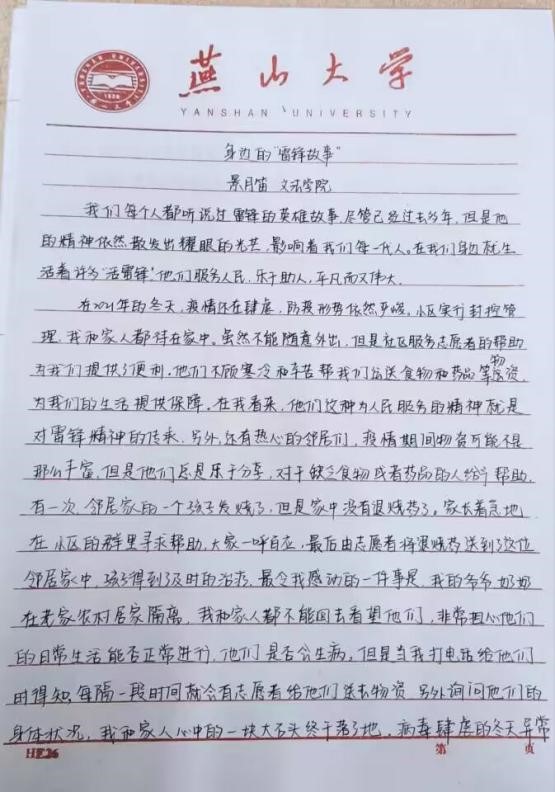 燕山大学
YANSHAN UNIVERSITY
身边的“雷锋故事”
景月笛 文法学院
我们每个人都听说过雷锋的英雄故事，尽管已经过去多年，但是他
的精神依然散发出耀眼的光芒，影响着我们每一代人。在我们身边就生
活着许多“活雷锋”，他们服务人民，乐于助人，平凡而又伟大。
在2021年的冬天，疫情还在肆虐，防疫形势依然严峻，小区实行封控管
理，我和家人都待在家中。虽然不能随意外出，但是社区服务志愿者的帮助
为我们提供了便利。他们不顾寒冷和辛苦帮我们运送食物和药品等物资，
为我们的生活提供保障。在我看来，他们这种为人民服务的精神就是
对雷锋精神的传承。另外，还有热心的邻居们，疫情期间物资可能不是
那么丰富，但是他们总是乐于分享，对于缺乏食物或者药品的人给予帮助。
有一次，邻居家的一个孩子发烧了，但是家中没有退烧药了。家长着急地
在小区的群里寻求帮助，大家一呼百应，最后由志愿者将退烧药送到了这位
邻居家中，孩子得到了及时的治疗。最令我感动的一件事是，我的爷爷奶奶
在老家农村居家隔离，我和家人都不能回去看望他们，非常担心他们
的日常生活能否正常进行，他们是否会生病，但是当我打电话给他们
时得知，每隔一段时间就会有志愿者给他们送去物资，另外询问他们的
身体状况，我和家人心中的一块大石头终于落了地。病毒肆虐的冬天异常
HF26 第 页